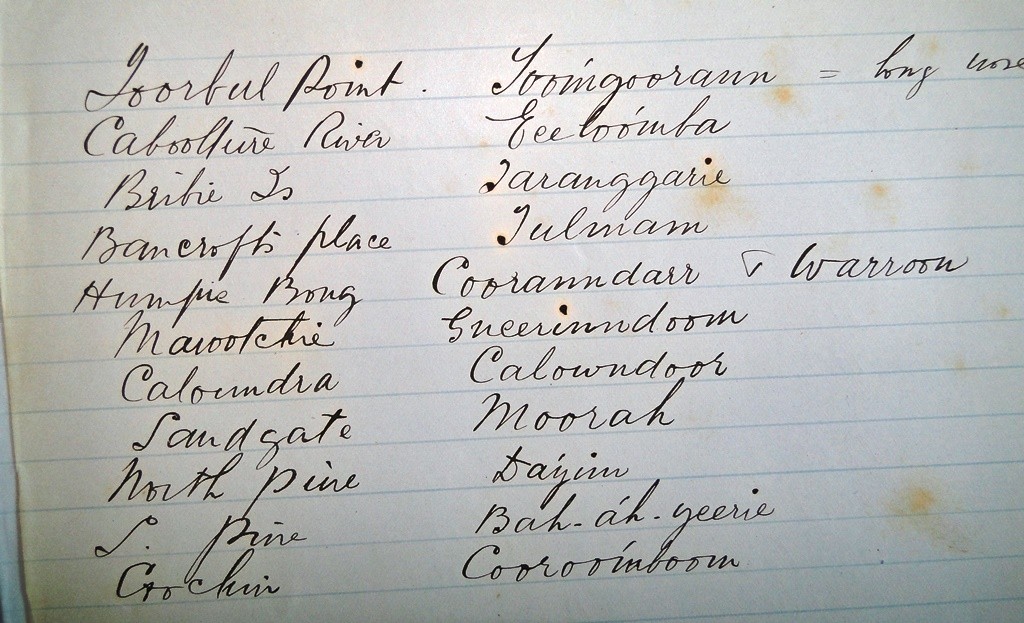 Toorbul Point. Tooingoorann = long nose
Caboolture River Eeeloómba
Bribie Is Taranggarie
Bancroft's place Tulmam
Humpie Bong Cooranndarr & Warroon
Marootchie Gneerinndoom
Caloundra Calowndoor
Sandgate Moorah
North Pine Dáyim
S. Pine Bah-áh-yeerie
Coochin Coorooímboom